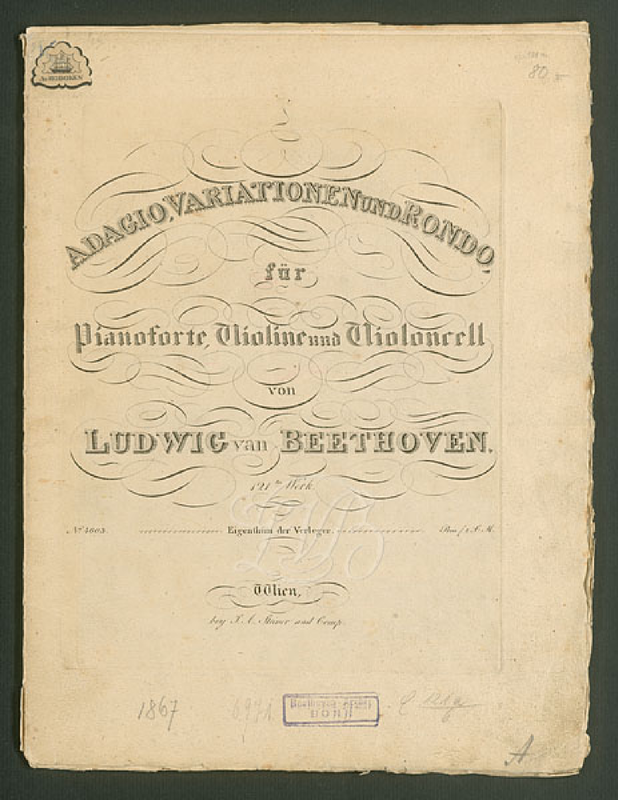 A. HOBOKEN
80.
ADAGIO, VARIATIONEN UND RONDO,
für
Pianoforte, Violine und Violoncell
von
LUDWIG van BEETHOVEN.
121tes Werk
No. 4603.
Eigenthum der Verleger.
Wien,
bey S. A. Steiner und Comp.
1867
BONN
A